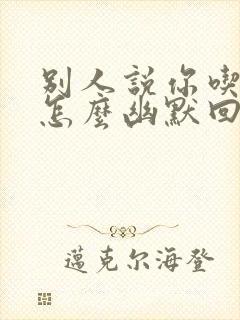 别人説你喫
怎麽幽默回
邁克尔海登